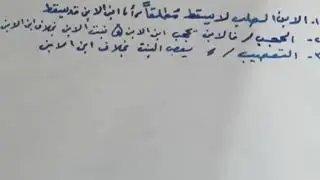 ١- الابن الصلب لا يسقط مطلقاً / أما ابن الابن قد يسقط
٢- الحجب / فالابن يحجب ابن الابن و بنت الابن بخلاف ابن الابن
٣- التعصيب / يعصب البنت بخلاف ابن الابن